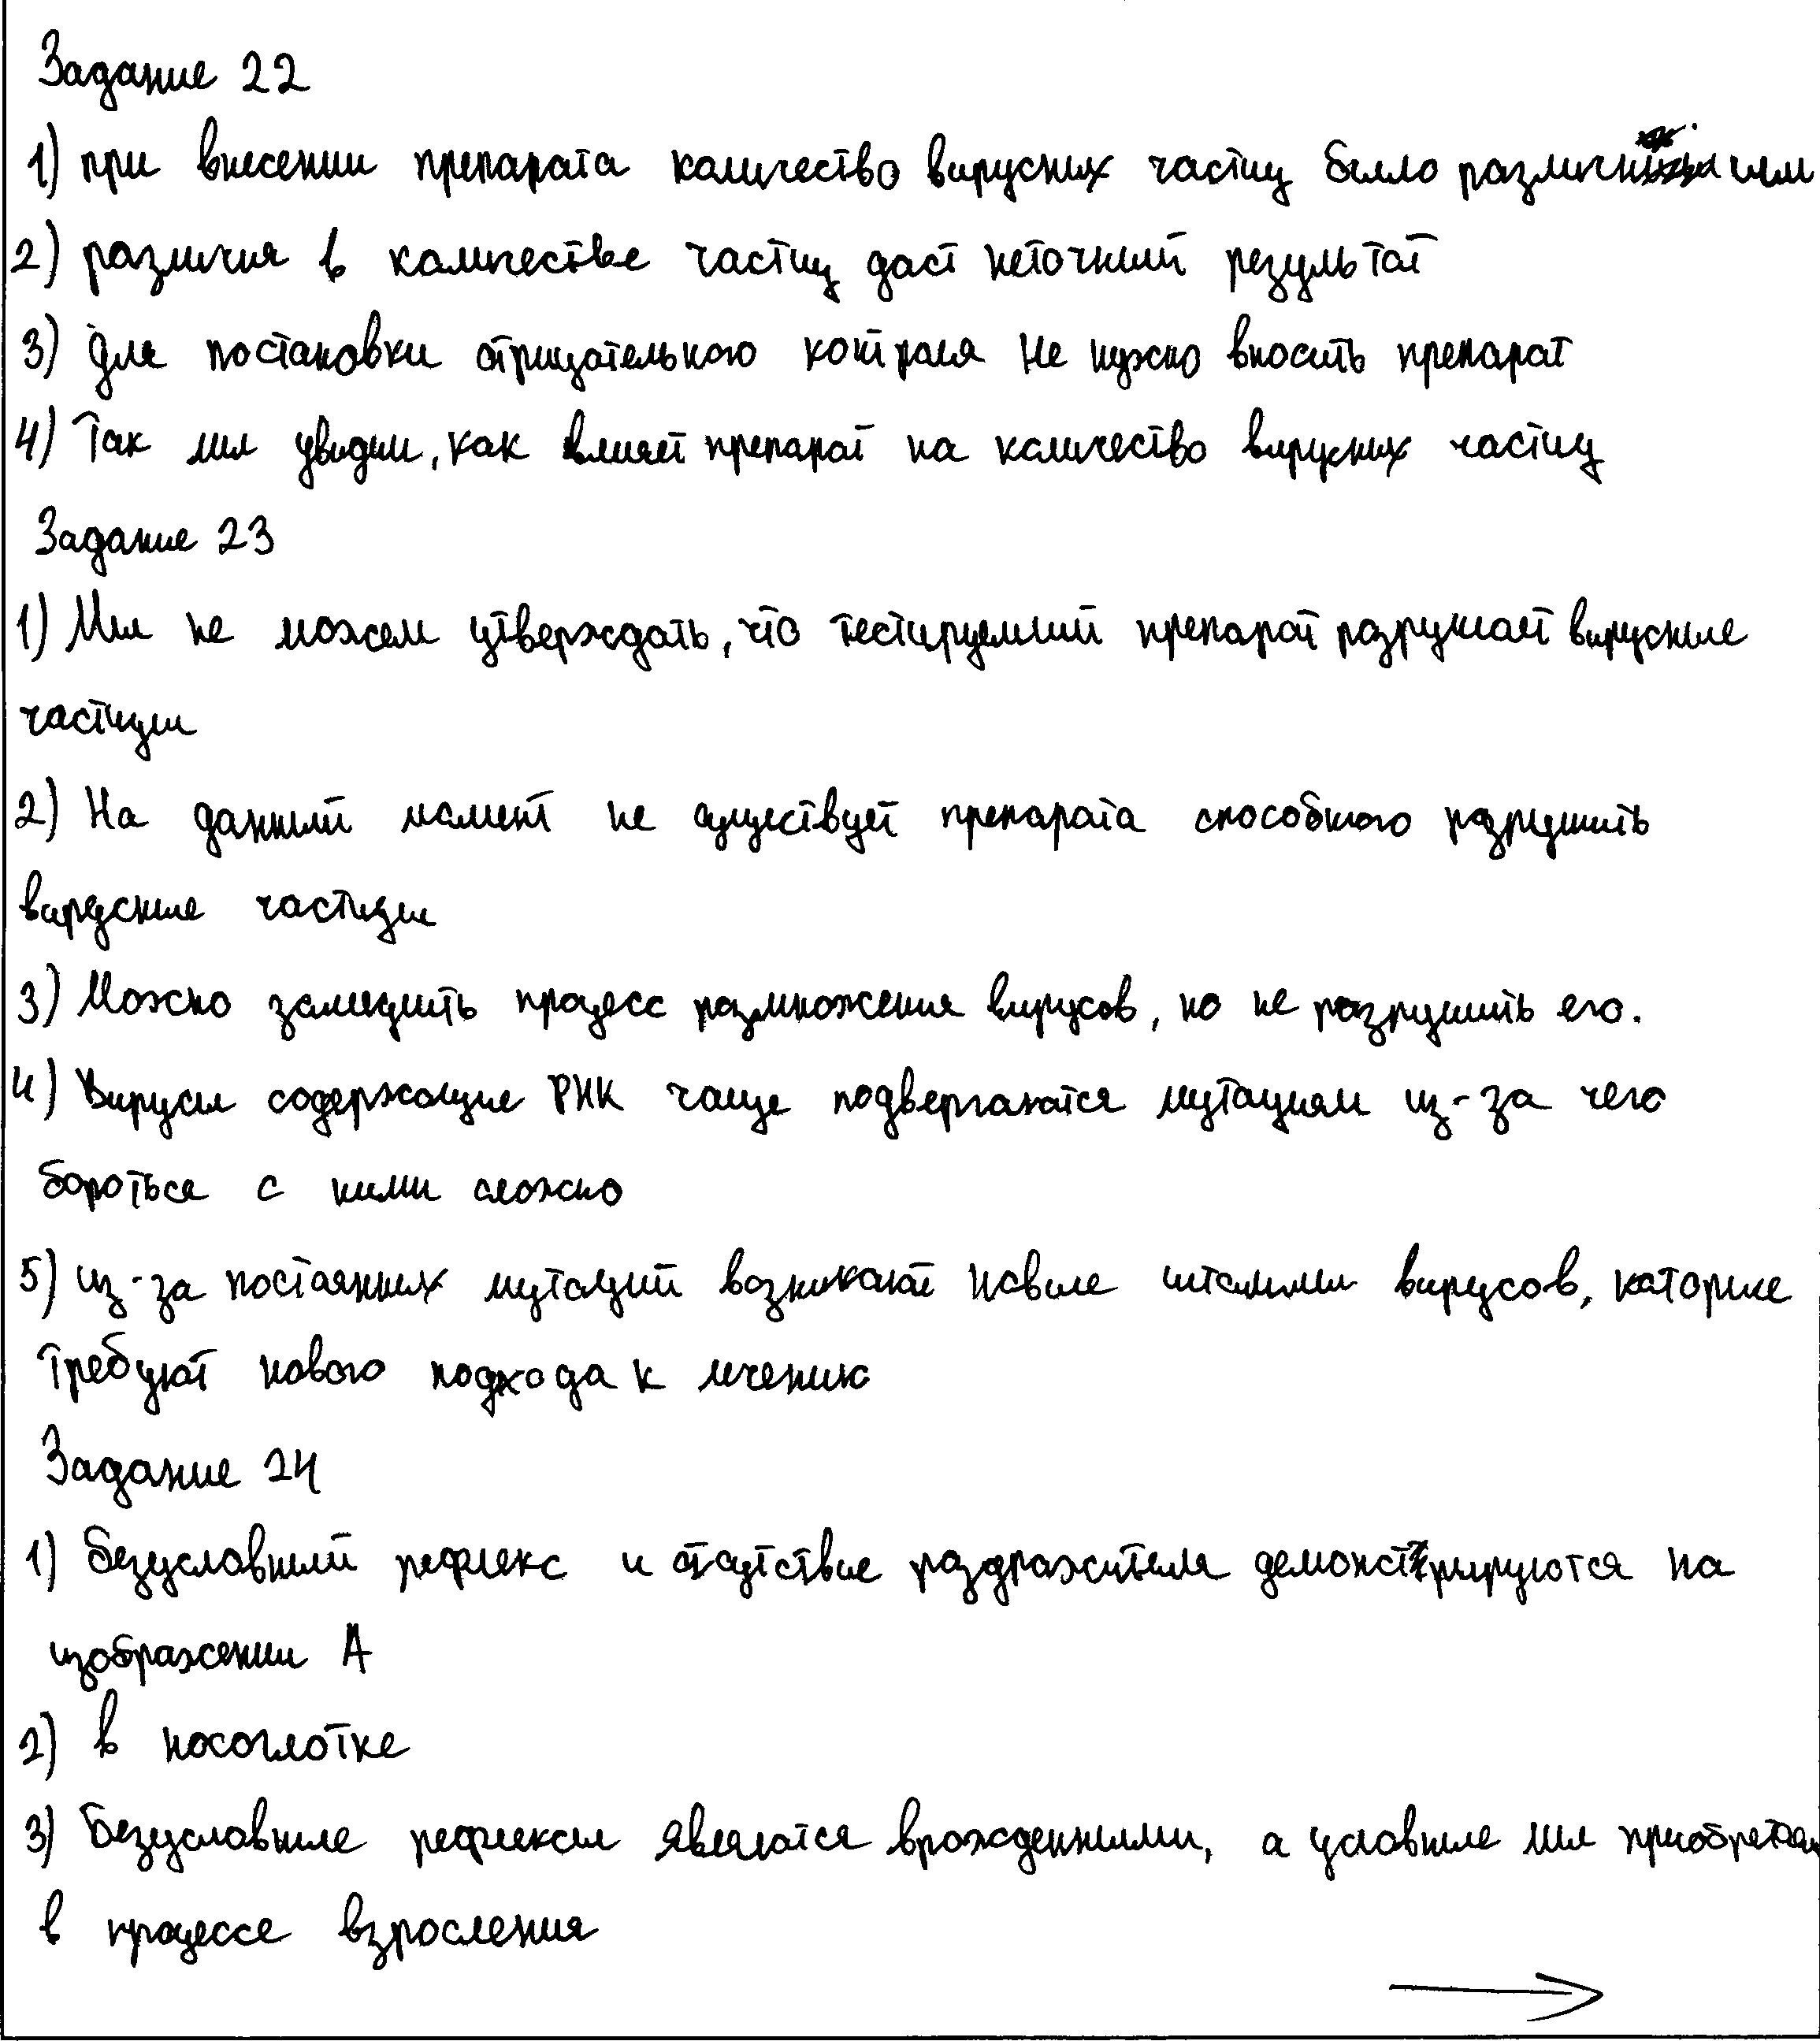 Задание 22
1) при внесении препарата количество вирусных частиц было различным
2) различия в количестве частиц даст неточный результат
3) Для постановки отрицательного контроля не нужно вносить препарат
4) Так мы увидим, как влияет препарат на количество вирусных частиц
Задание 23
1) Мы не можем утверждать, что тестируемый препарат разрушает вирусные
частицы
2) На данный момент не существует препарата способного разрушить
вирусные частицы
3) Можно замедлить процесс размножения вирусов, но не разрушить его.
4) Вирусы содержащие РНК чаще подвергаются мутациям из-за чего
бороться с ними сложно
5) из-за постоянных мутаций возникают новые штаммы вирусов, которые
требуют нового подхода к лечению
Задание 24
1) Безусловный рефлекс и отсутствие раздражителя демонстрируются на
изображении А
2) в носоглотке
3) Безусловные рефлексы являются врожденными, а условные мы приобретаем
в процессе взросления